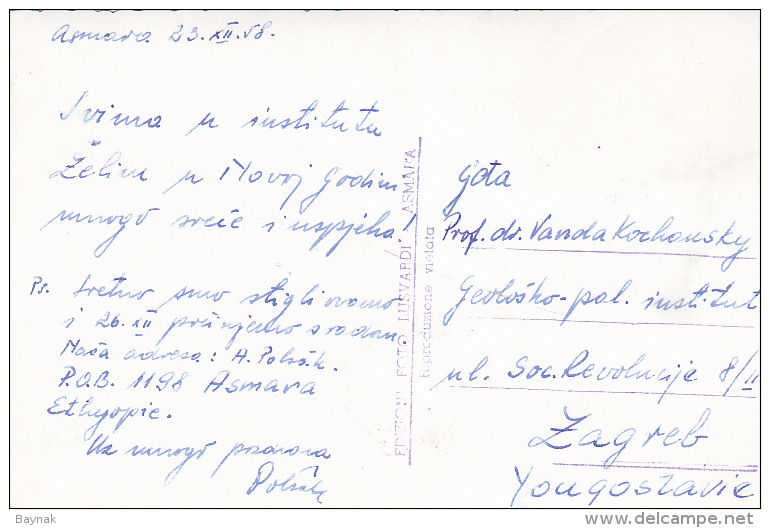 Asmara 23.XII.58.
Svima u institutu
Želim u Novoj Godini
mnogo sreće i uspjeha!
Ps. Sretno smo stigli ovamo
i 26.XII počinjemo s radom
Naša adresa: A. Polšak.
P.O.B. 1198 Asmara
Ethyopie.
Uz mnogo pozdrava
Polšak
EDIZIONI FOTO LUSVARDI. ASMARA
Riproduzione vietata
Gđa
Prof. dr. Vanda Kochansky
Geološko-pal. institut
ul. Soc. Revolucije 8/II
Zagreb
Yougoslavie
Baynak
delcampe.net